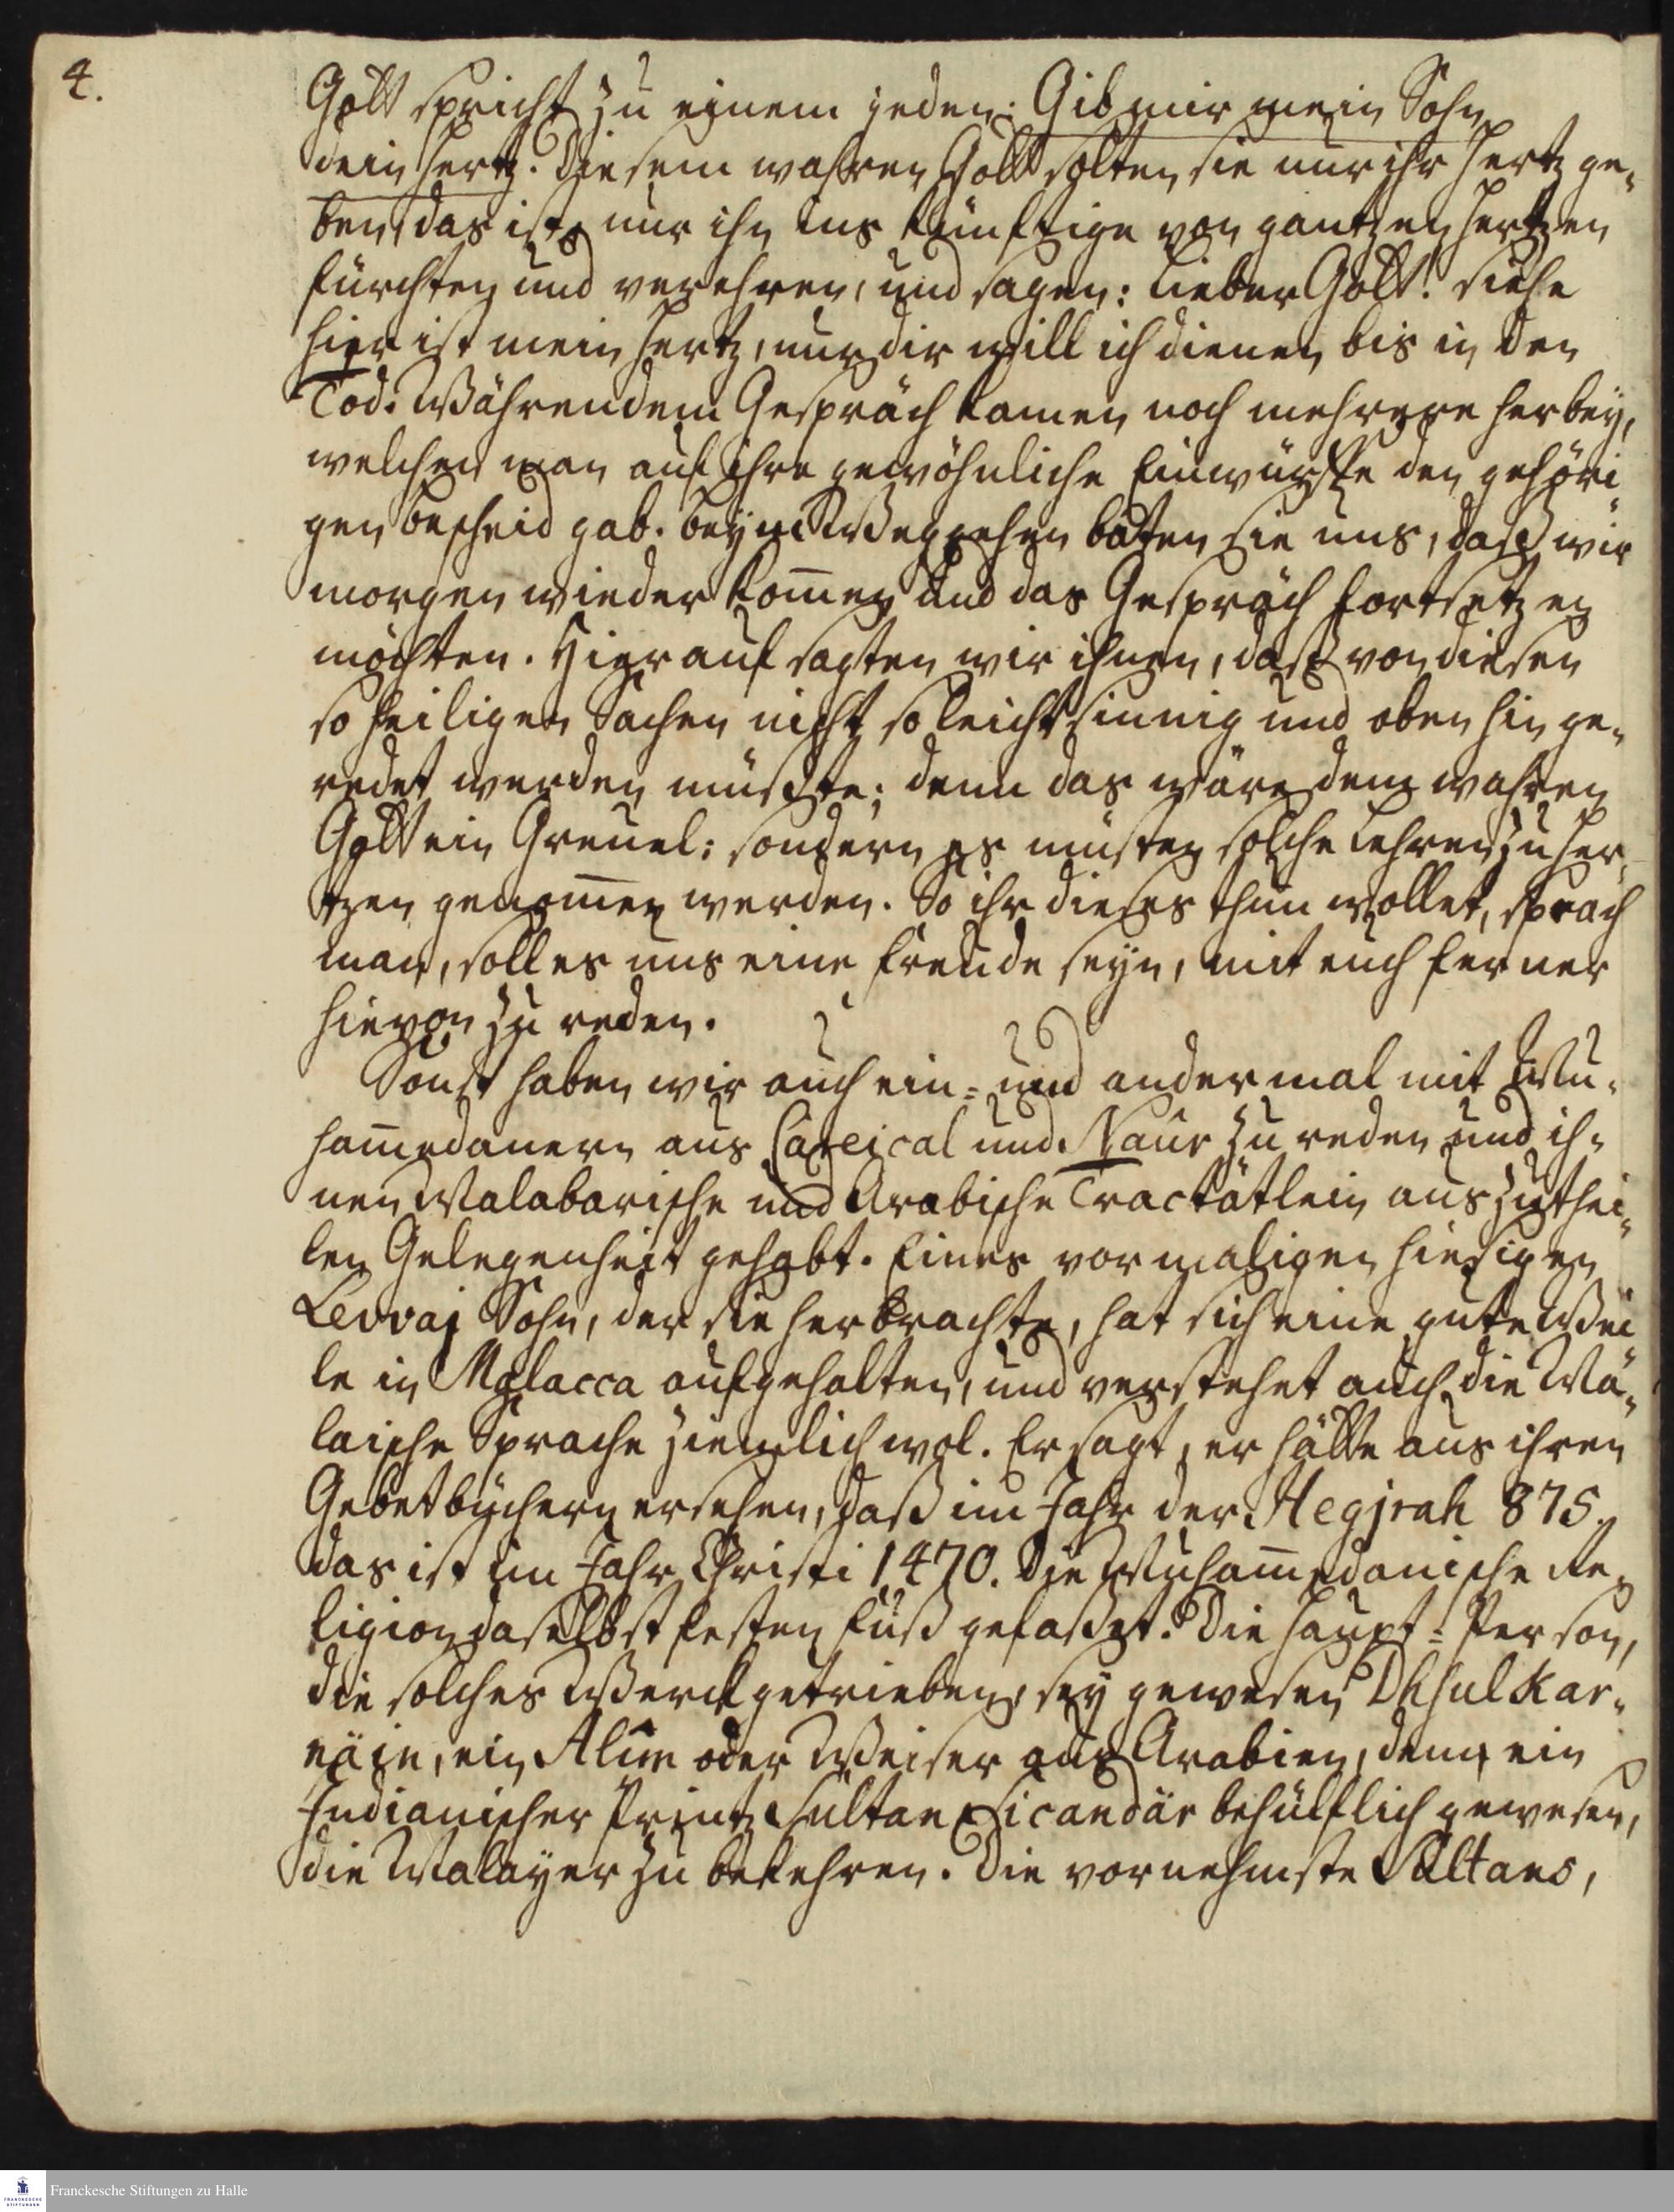 4.
Gott spricht zu einem jeden: Gib mir mein Sohn
dein Hertz. Diesem wahren Gott solten sie nur ihr Hertz ge-
ben, das ist, nur ihn ins künftige von gantzen Hertzen
fürchten und verehren, und sagen: Lieber Gott! siehe
hier ist mein Hertz, nur dir will ich dienen bis in den
Tod. Währendem Gespräch kamen noch mehrere herbey,
welchen man auf ihre gewöhnliche Einwürffe den gehöri-
gen bescheid gab. Beym Weggehen baten sie uns, daß wir
morgen wieder kom̄en und das Gespräch fortsetzen
möchten. Hierauf sagten wir ihnen, daß von diesen
so heiligen Sachen nicht so leichtsinnig und oben hin ge-
redet werden müßte; denn das wäre dem wahren
Gott ein Greuel: sondern es müsten solche Lehren zu Her-
tzen genom̄en werden. So ihr dieses thun wollet, sprach
man, soll es uns eine Freude seyn, mit euch ferner
hievon zu reden.
Sonst haben wir auch ein= und andermal mit Mu-
ham̄edanern aus Careical und Naur zu reden und ih-
nen Malabarische und Arabische Tractätlein auszuthei-
len Gelegenheit gehabt. Eines vormaligen hiesigen
Levvai Sohn, der sie herbrachte, hat sich eine gute Wei-
le in Malacca aufgehalten, und verstehet auch die Ma-
laische Sprache ziemlich wol. Er sagt, er hätte aus ihren
Gebetbüchern ersehen, daß im Jahr der Hegjrah 875.
das ist im Jahr Christi 1470. die Muham̄edanische Re-
ligion daselbst festen Fuß gefaßet. Die Haupt=Person,
die solches Werck getrieben, sey gewesen Dhsulkar-
näin, ein Alim oder Weiser aus Arabien, dem ein
Indianischer Printz Sultan Sicandär behülflich gewesen,
die Malayer zu bekehren. Die vornehmste Sultans,
Franckesche Stiftungen zu Halle
FRANCKESCHE
STIFTUNGEN